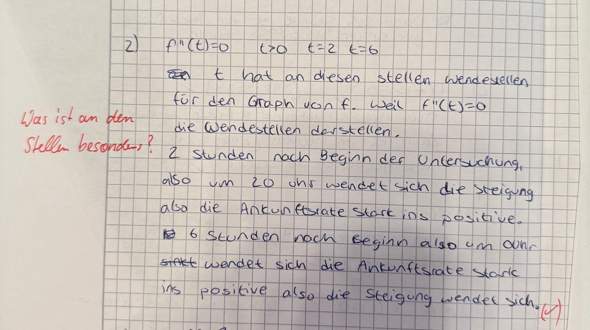 2) f"(t)=0 t>0 t=2 t=6
t hat an diesen stellen wendestellen
für den Graph von f. Weil f"(t)=0
Was ist an den
die Wendestellen darstellen.
Stellen besonders?
2 Stunden nach Beginn der Untersuchung,
also um 20 Uhr wendet sich die steigung
also die Ankunftsrate stark ins positive.
6 Stunden nach Beginn also um 0Uhr
wendet sich die Ankunftsrate stark
ins positive also die Steigung wendet sich. (✓)